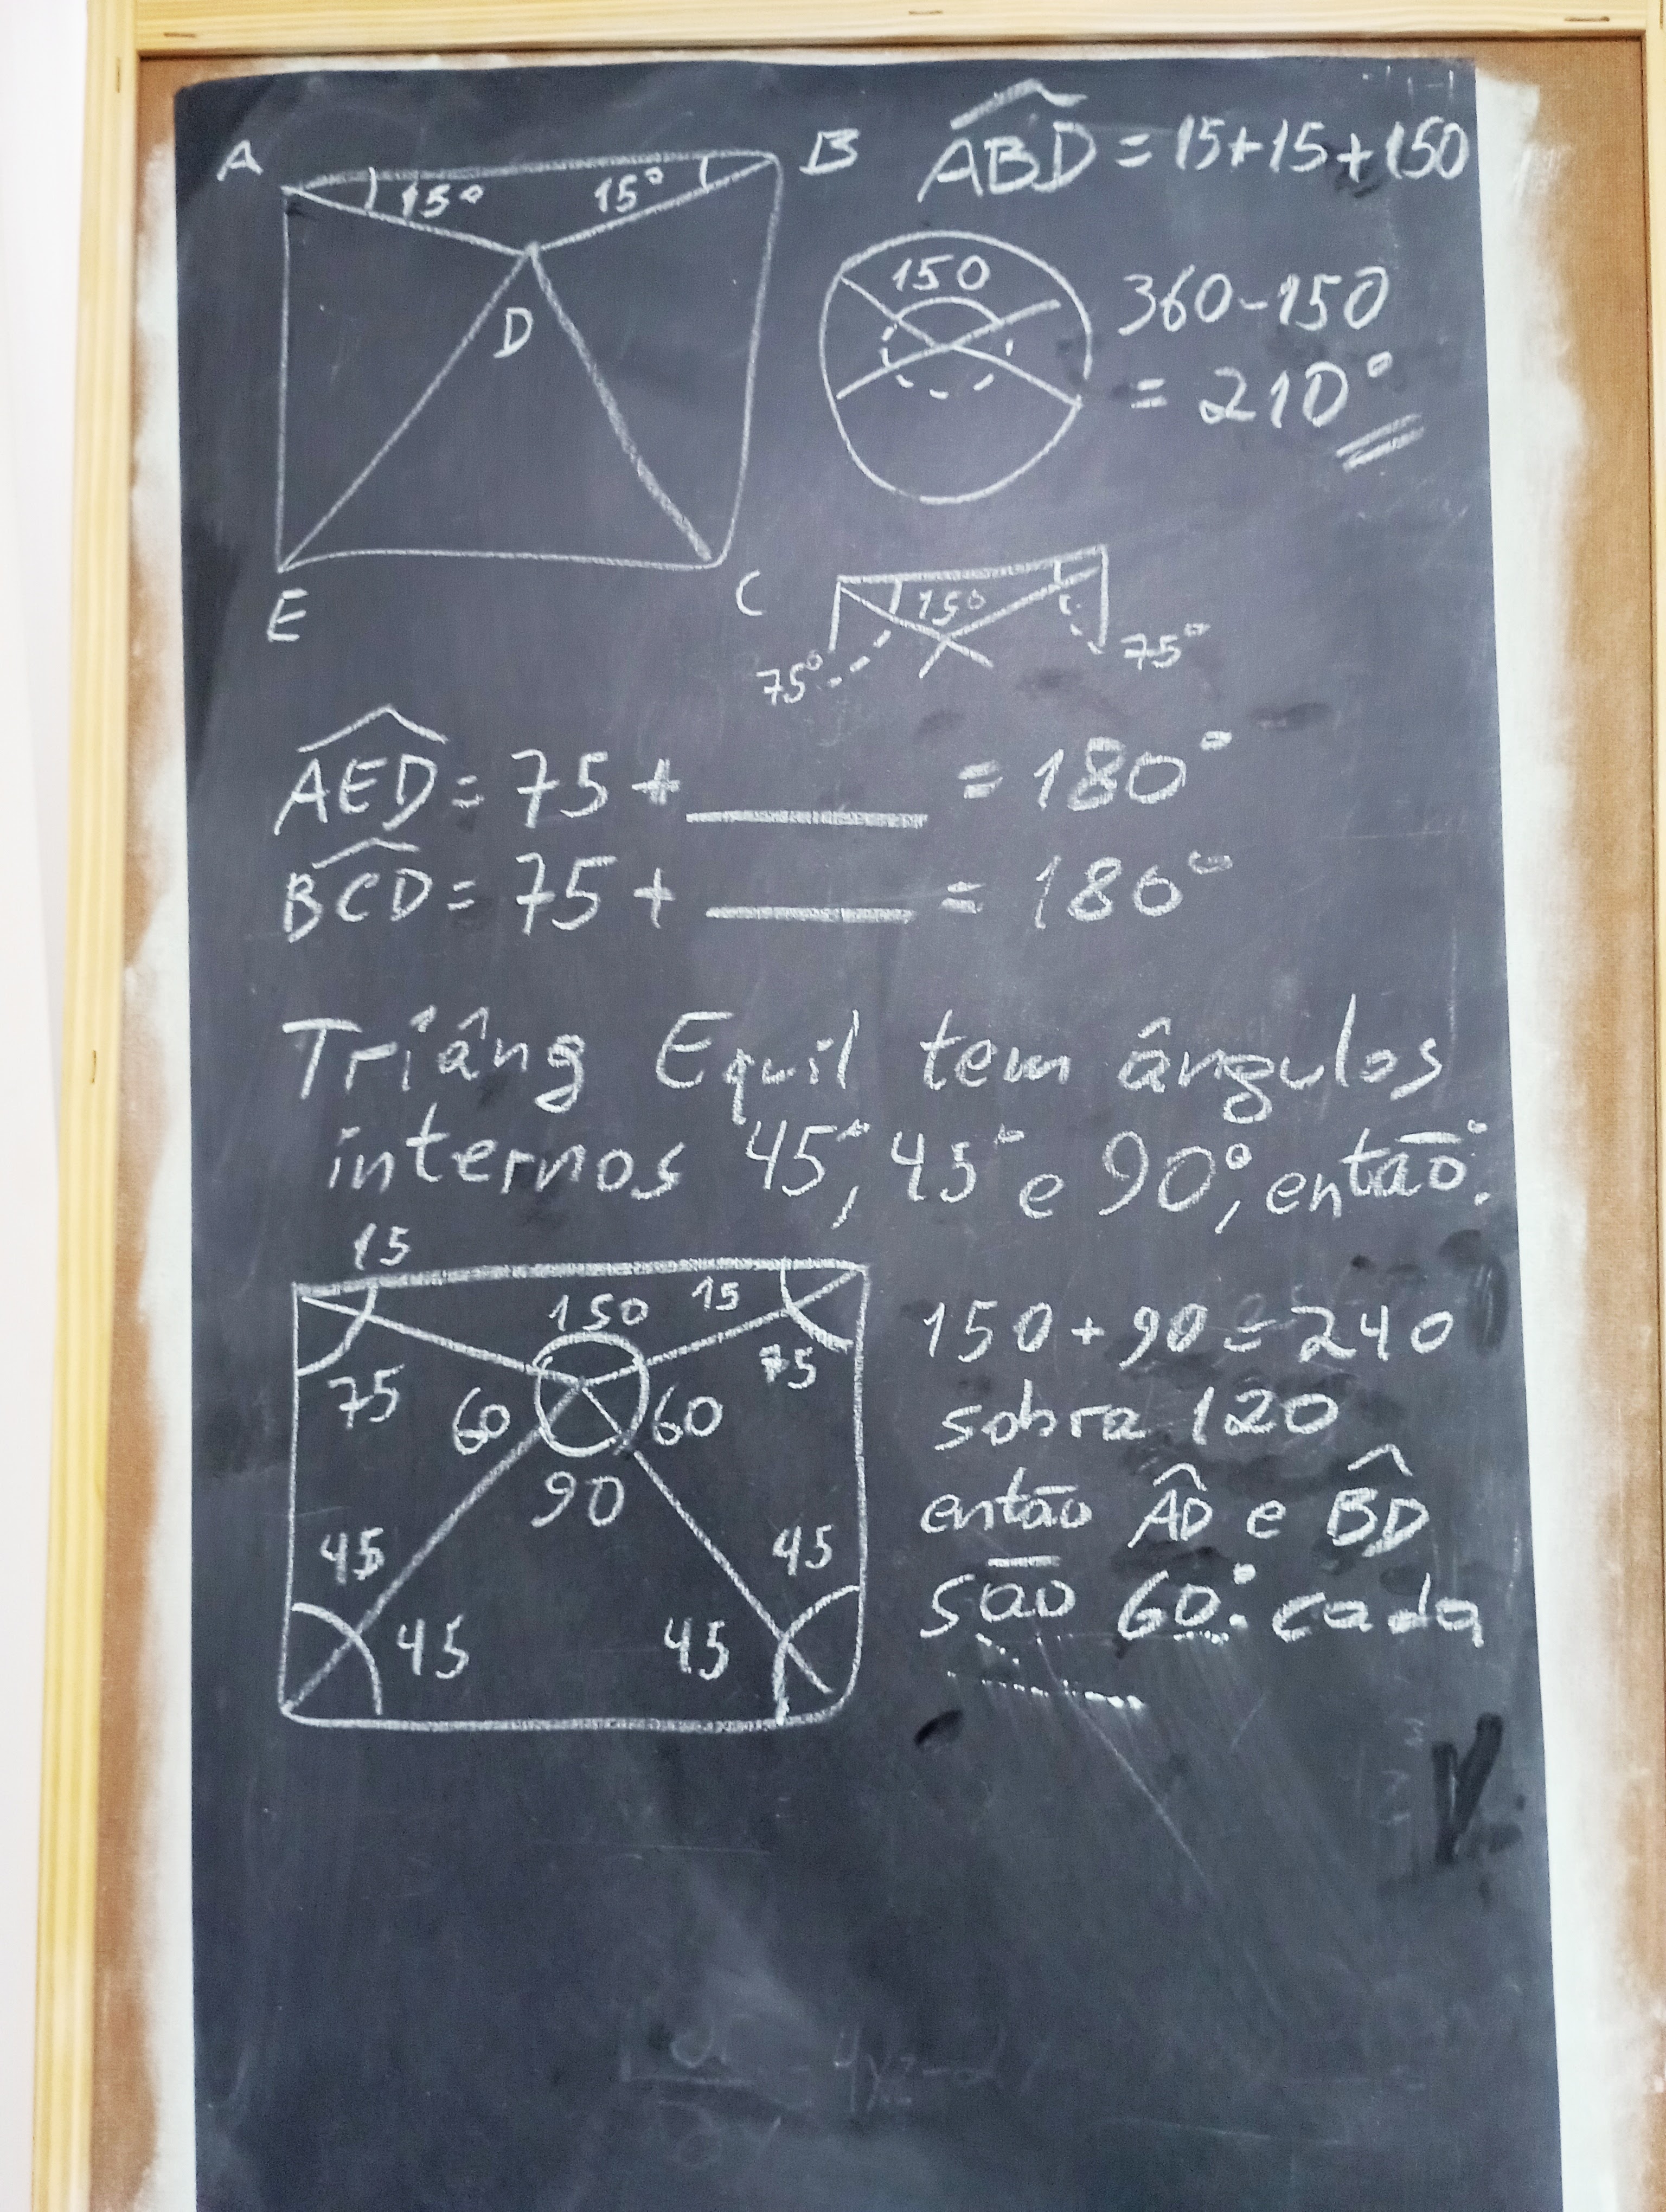 A
B
ABD = 15+15+150
15°
15°
D
150
360-150
= 210°
E
C
15°
75°
75°
AED = 75 + ______ = 180°
BCD = 75 + ______ = 180°
Triâng Equil tem ângulos
internos 45°, 45° e 90°, então:
15
150
15
75
75
60
60
90
45
45
45
45
150 + 90 = 240
sobra 120
então AD e BD
são 60° cada